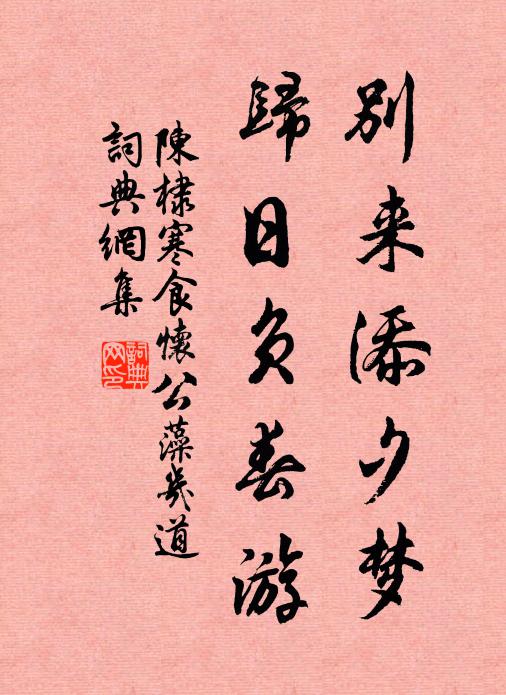 别来添夕梦
歸日负春游
陳棣寒食懷公藻幾道
詞典網集
詞典网印